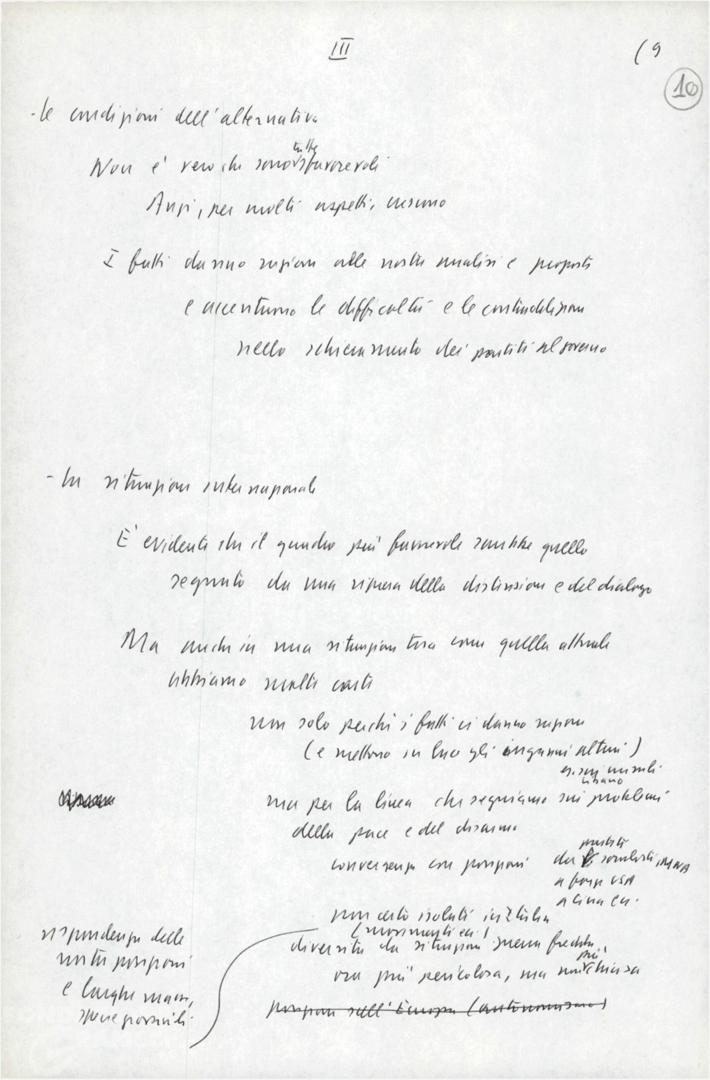 III
(9
10
- le condizioni dell'alternativa
tutte
Non è vero che sono sfavorevoli
Anzi, per molti aspetti, crescono
I fatti danno ragione alle nostre analisi e proposte
e accentuano le difficoltà e le contraddizioni
nello schieramento dei partiti al governo
- la situazione internazionale
È evidente che il quadro più favorevole sarebbe quello
segnato da una ripresa della distensione e del dialogo
Ma anche in una situazione tesa come quella attuale
abbiamo molte carte
non solo perché i fatti ci danno ragione
(e mettono in luce gli inganni altrui)
missili
ma per la linea che seguiamo sui problemi
della pace e del disarmo
convergenza con posizioni
partiti
da socialisti
a forze USA
a Cina ecc.
non certo isolati in Italia
(movimenti ecc)
diversità da situazione guerra fredda,
più
ora più pericolosa, ma chiusa
rispondenza delle
nostre posizioni
e larghe masse,
posizioni sull'Europa (autonomismo)